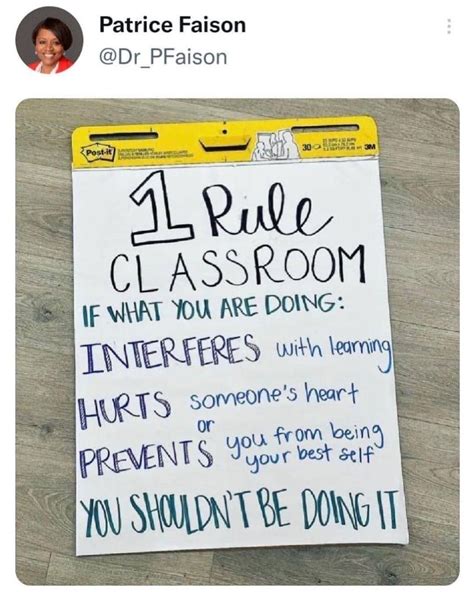 Patrice Faison
@Dr_PFaison
Post-it
30
3M
1 Rule
CLASSROOM
IF WHAT YOU ARE DOING:
INTERFERES with learning
HURTS someone's heart
or
PREVENTS you from being
your best self
YOU SHOULDN'T BE DOING IT